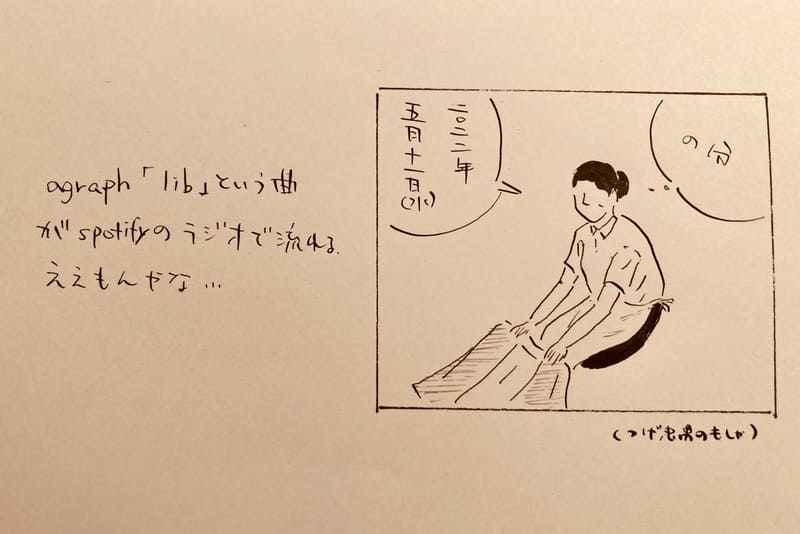 agraph「lib」という曲
がspotifyのラジオで流れる.
ええもんやな…
二〇二二年
五月十一日(水)
の分
(つげ忠男のもしゃ)